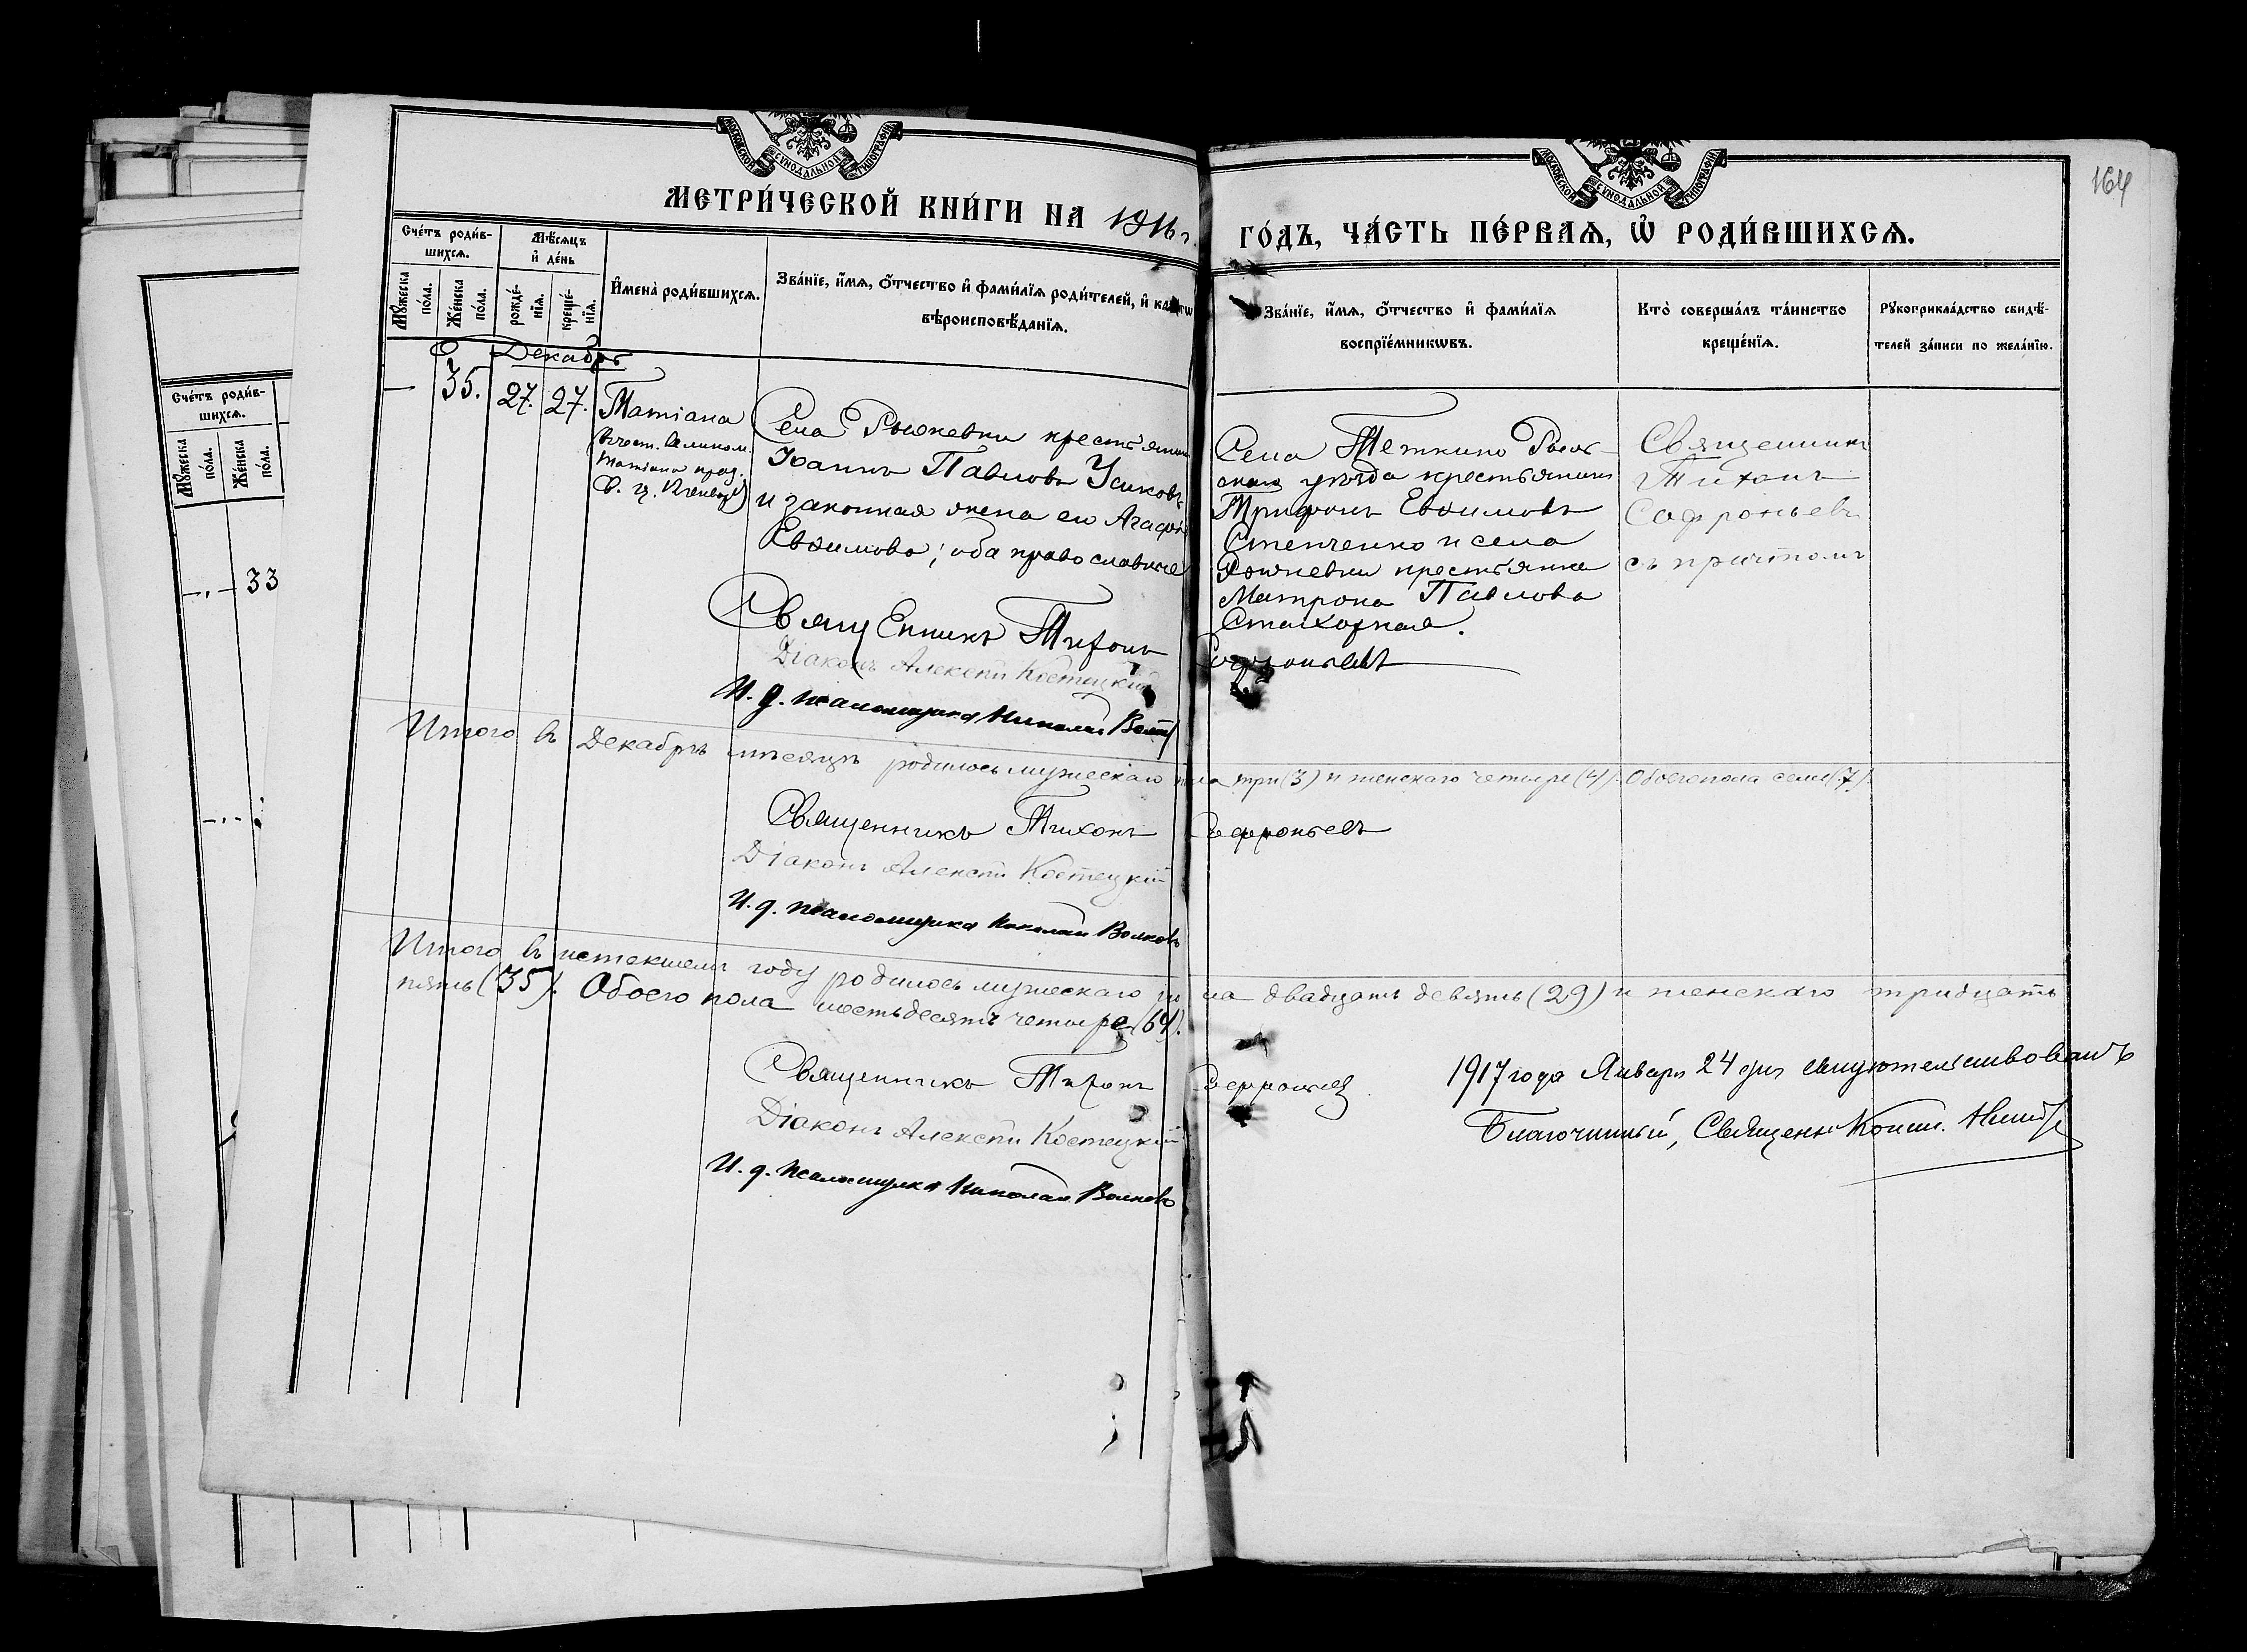 164
МОСКОВСКОЙ СУНОДАЛЬНОЙ ТИПОГРАФІИ
МОСКОВСКОЙ СУНОДАЛЬНОЙ ТИПОГРАФІИ
МЕТРИ́ЧЕСКОЙ КНИ́ГИ НА 1916 г.
ГО́ДЪ, ЧА́СТЬ ПЕ́РВАѦ, Ѡ҆ РОДИ́ВШИХСѦ.
Сче́тъ роди́в-
шихсѧ.
Мꙋ́жеска по́ла.
Же́нска по́ла.
Мѣ́сѧцъ
и҆ де́нь
рожде́-
нїѧ.
креще́-
нїѧ.
И҆мена̀ роди́вшихсѧ.
Зва́нїе, и҆́мѧ, ѻ҆́тчество и҆ фами́лїѧ роди́телей, и҆
вѣроисповѣ́данїѧ.
Зва́нїе, и҆́мѧ, ѻ҆́тчество и҆ фами́лїѧ
воспрїе́мникѡвъ.
Кто̀ соверша́лъ та́инство
креще́нїѧ.
Рꙋкоприкла́дство свидѣ́-
телей за́писи по жела́нїю.
Декабрь
— 35. 27. 27.
Татіана
Села крестьянинъ
Іоаннъ Павловъ Усиковъ
и законная жена его Агафія
Евѳимова; оба православные
Села Теткино Рыль-
скаго уѣзда крестьянинъ
Трифонъ Евѳимовъ
Степченко и села
крестьянка
Матрона Павлова
Священникъ
Тихонъ
Софроньевъ
съ причтомъ
Священникъ Тихонъ Софроньевъ
Діаконъ Алексѣй Костецкій
И. д. псаломщика Николай
Итого въ Декабрѣ мѣсяцѣ родилось мужескаго пола три (3) и женскаго четыре (4). Обоего пола семь (7).
Священникъ Тихонъ Софроньевъ
Діаконъ Алексѣй Костецкій
И. д. псаломщика Николай Волковъ
Итого въ истекшемъ году родилось мужескаго пола двадцать девять (29) и женскаго тридцать
пять (35). Обоего пола шестьдесятъ четыре (64).
Священникъ Тихонъ Софроньевъ
Діаконъ Алексѣй Костецкій
И. д. псаломщика Николай Волковъ
1917 года Января 24 дня свидѣтельствовалъ
Благочинный, Священ.
Сче́тъ роди́в-
шихсѧ.
Мꙋ́жеска по́ла.
Же́нска по́ла.
33